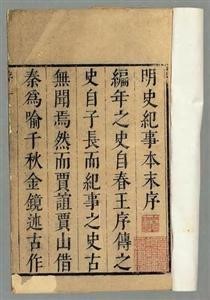 明史紀事本末序
編年之史自春王序傳之
史自子長而紀事之史古
無聞焉然而賈誼賈山借
秦為喻千秋金鏡述古作